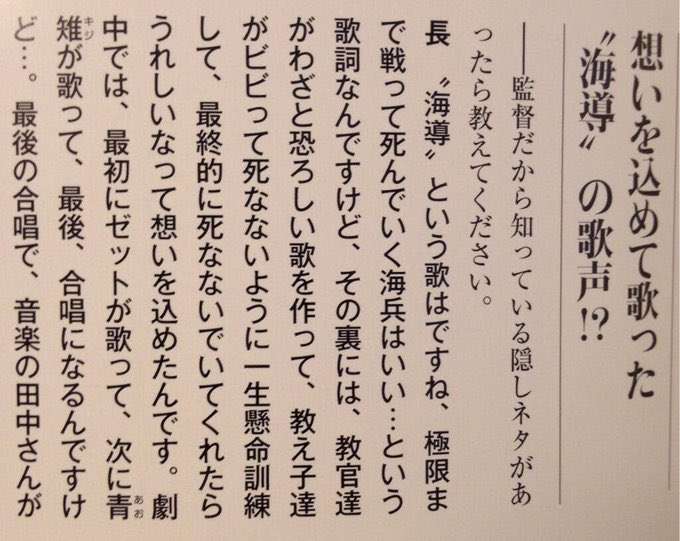 想いを込めて歌った
〝海導〟の歌声!?
――監督だから知っている隠しネタがあ
ったら教えてください。
長　〝海導〟という歌はですね、極限ま
で戦って死んでいく海兵はいい…という
歌詞なんですけど、その裏には、教官達
がわざと恐ろしい歌を作って、教え子達
がビビって死なないように一生懸命訓練
して、最終的に死なないでいてくれたら
うれしいなって想いを込めたんです。劇
中では、最初にゼットが歌って、次に青あお
雉キジが歌って、最後、合唱になるんですけ
ど…。最後の合唱で、音楽の田中さんが